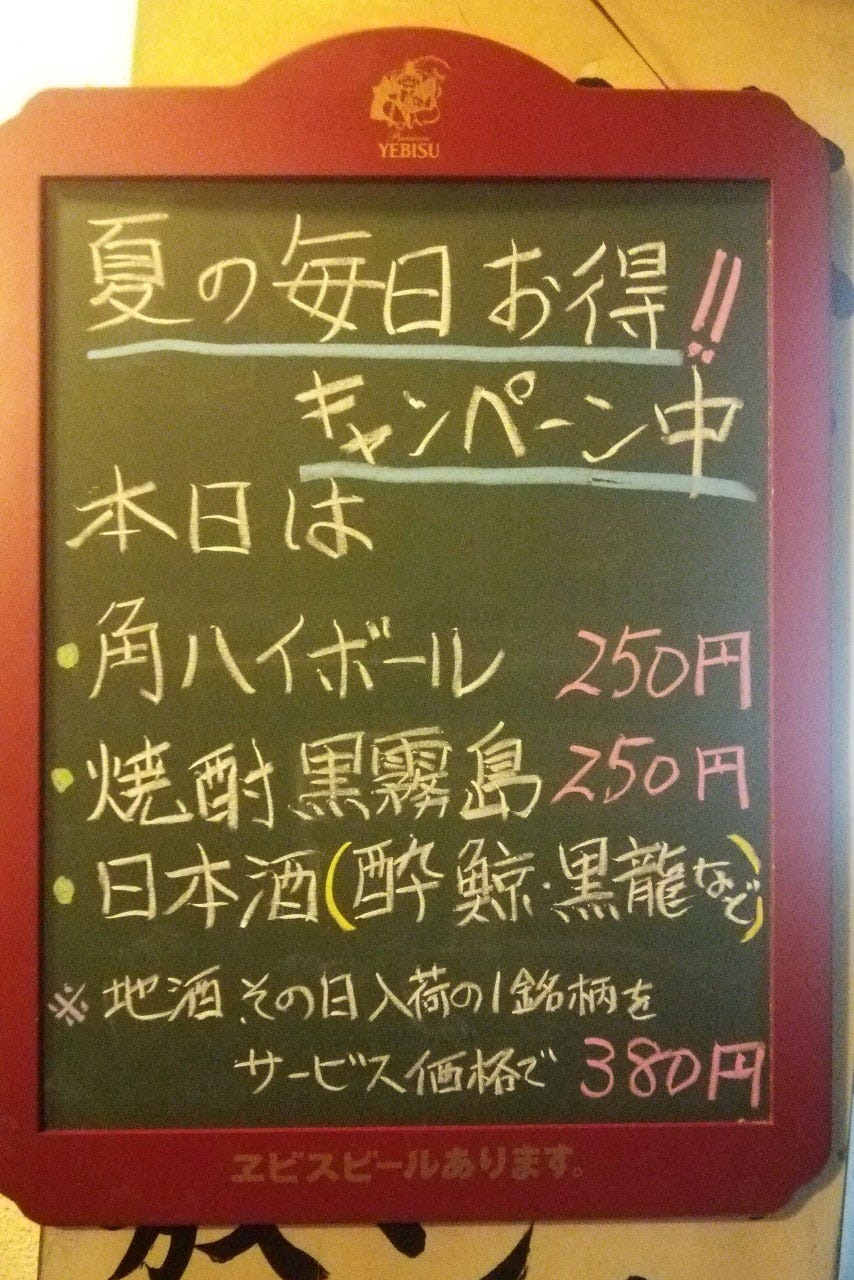 YEBISU
夏の毎日お得!!
キャンペーン中
本日は
・角ハイボール 250円
・焼酎 黒霧島 250円
・日本酒(酔鯨・黒龍など)
※地酒 その日入荷の1銘柄を
サービス価格で 380円
ヱビスビールあります。